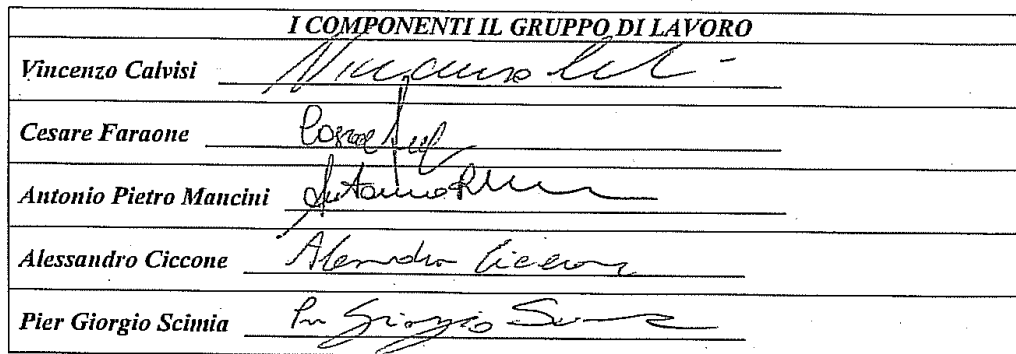 I COMPONENTI IL GRUPPO DI LAVORO
Vincenzo Calvisi
Cesare Faraone
Antonio Pietro Mancini
Alessandro Ciccone Alessandro Ciccone
Pier Giorgio Scimia Giorgio